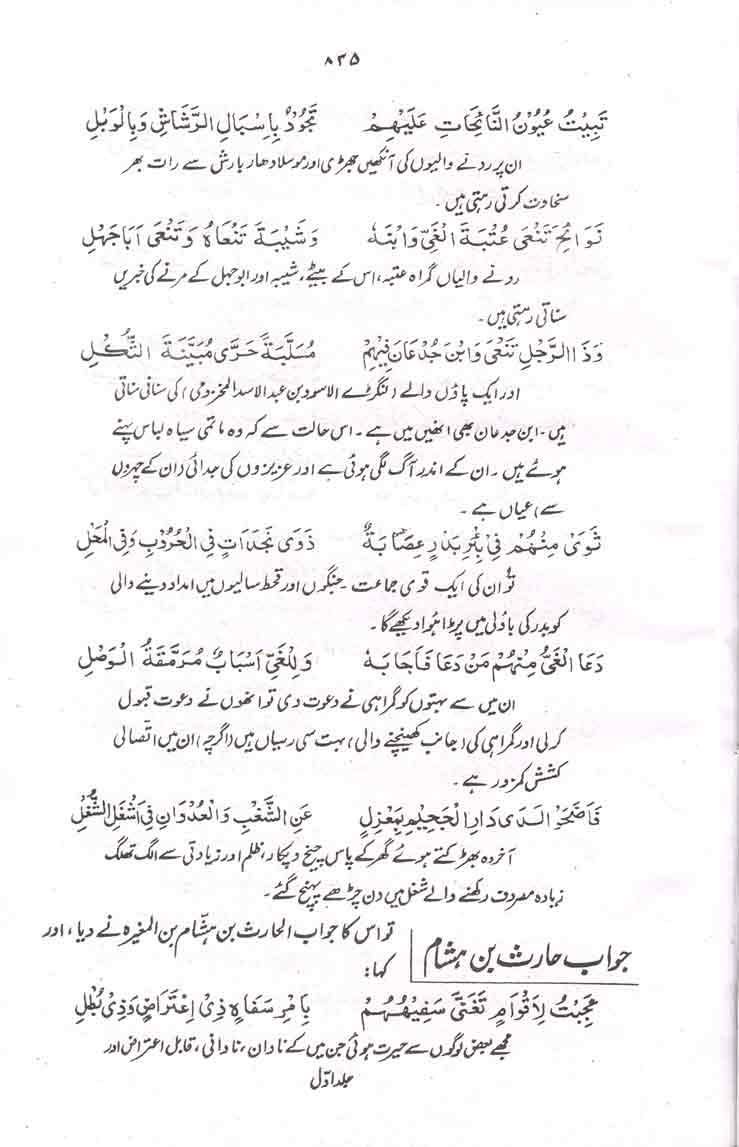 ۸۳۵
تَبِيْتُ عُيُوْنُ النَّائِحَاتِ عَلَيْهِمْ تَجُوْدُ بِاِسْبَالِ الرَّشَاشِ وَبِالْوَبْلِ
ان پر رونے والیوں کی آنکھیں جھڑی اور موسلا دھار بارش سے رات بھر
سخاوت کرتی رہتی ہیں۔
نَوَائِحَ تَنْعٰى عُتْبَةَ الْغَيِّ وَابْنَهٗ وَشَيْبَةَ تَنْعَاهُ وَتَنْعٰى اَبَا جَهْلِ
رونے والیاں گمراہ عتبہ، اس کے بیٹے، شیبہ اور ابوجہل کے مرنے کی خبریں
سناتی رہتی ہیں۔
وَذَا الرِّجْلِ تَنْعٰى وَابْنَ جُدْعَانَ فِيْهِمْ مُسَلَّبَةً حَرّٰى مُبَيَّنَةَ الثُّكْلِ
اور ایک پاؤں والے (لنگڑے الاسود بن عبد الاسد المخزومی) کی سنانی سناتی
ہیں۔ ابن جدعان بھی انھیں میں ہے۔ اس حالت سے کہ وہ ماتمی سیاہ لباس پہنے
ہوئے ہیں۔ ان کے اندر آگ لگی ہوئی ہے اور عزیزوں کی جدائی (ان کے چہروں
سے) عیاں ہے۔
ثَوٰى مِنْهُمْ فِيْ بِئْرِ بَدْرٍ عِصَابَةٌ ذَوٰى نَجَدَاتٍ فِى الْحُرُوْبِ وَفِى الْمَحْلِ
تو ان کی ایک قوی جماعت۔ جنگوں اور قحط سالیوں میں امداد دینے والی
کو بدر کی باؤلی میں پڑا ہوا دیکھے گا۔
دَعَا الْغَيُّ مِنْهُمْ مَنْ دَعَا فَاَجَابَهٗ وَلِلْغَيِّ اَسْبَابٌ مُرَمَّقَةُ الْوَصْلِ
ان میں سے بہتوں کو گمراہی نے دعوت دی تو انھوں نے دعوت قبول
کرلی اور گمراہی کی (جانب کھینچنے والی) بہت سی رسیاں ہیں (اگرچہ) ان میں اتّصالی
کشش کمزور ہے۔
فَاَضْحَوْا لَدٰى دَارِ الْجَحِيْمِ بِمَعْزِلٍ عَنِ الشَّغْبِ وَالْعُدْوَانِ فِيْ اَشْغَلِ الشُّغُلِ
آخر وہ بھڑکتے ہوئے گھر کے پاس چیخ و پکار، ظلم اور زیادتی سے الگ تھلگ
زیادہ مصروف رکھنے والے شغل میں دن چڑھے پہنچ گئے۔
جواب حارث بن ہشام
تو اس کا جواب الحارث بن ہشّام بن المغیرہ نے دیا، اور
کہا:
عَجِبْتُ لِاَقْوَامٍ تَغَنّٰى سَفِيْهُهُمْ بِاَمْرِ سَفَاهٍ ذِيْ اِعْتِرَاضٍ وَذِيْ بُطْلِ
مجھے بعض لوگوں سے حیرت ہوئی جن میں کے نادان، نادانی، قابل اعتراض اور
جلد اوّل